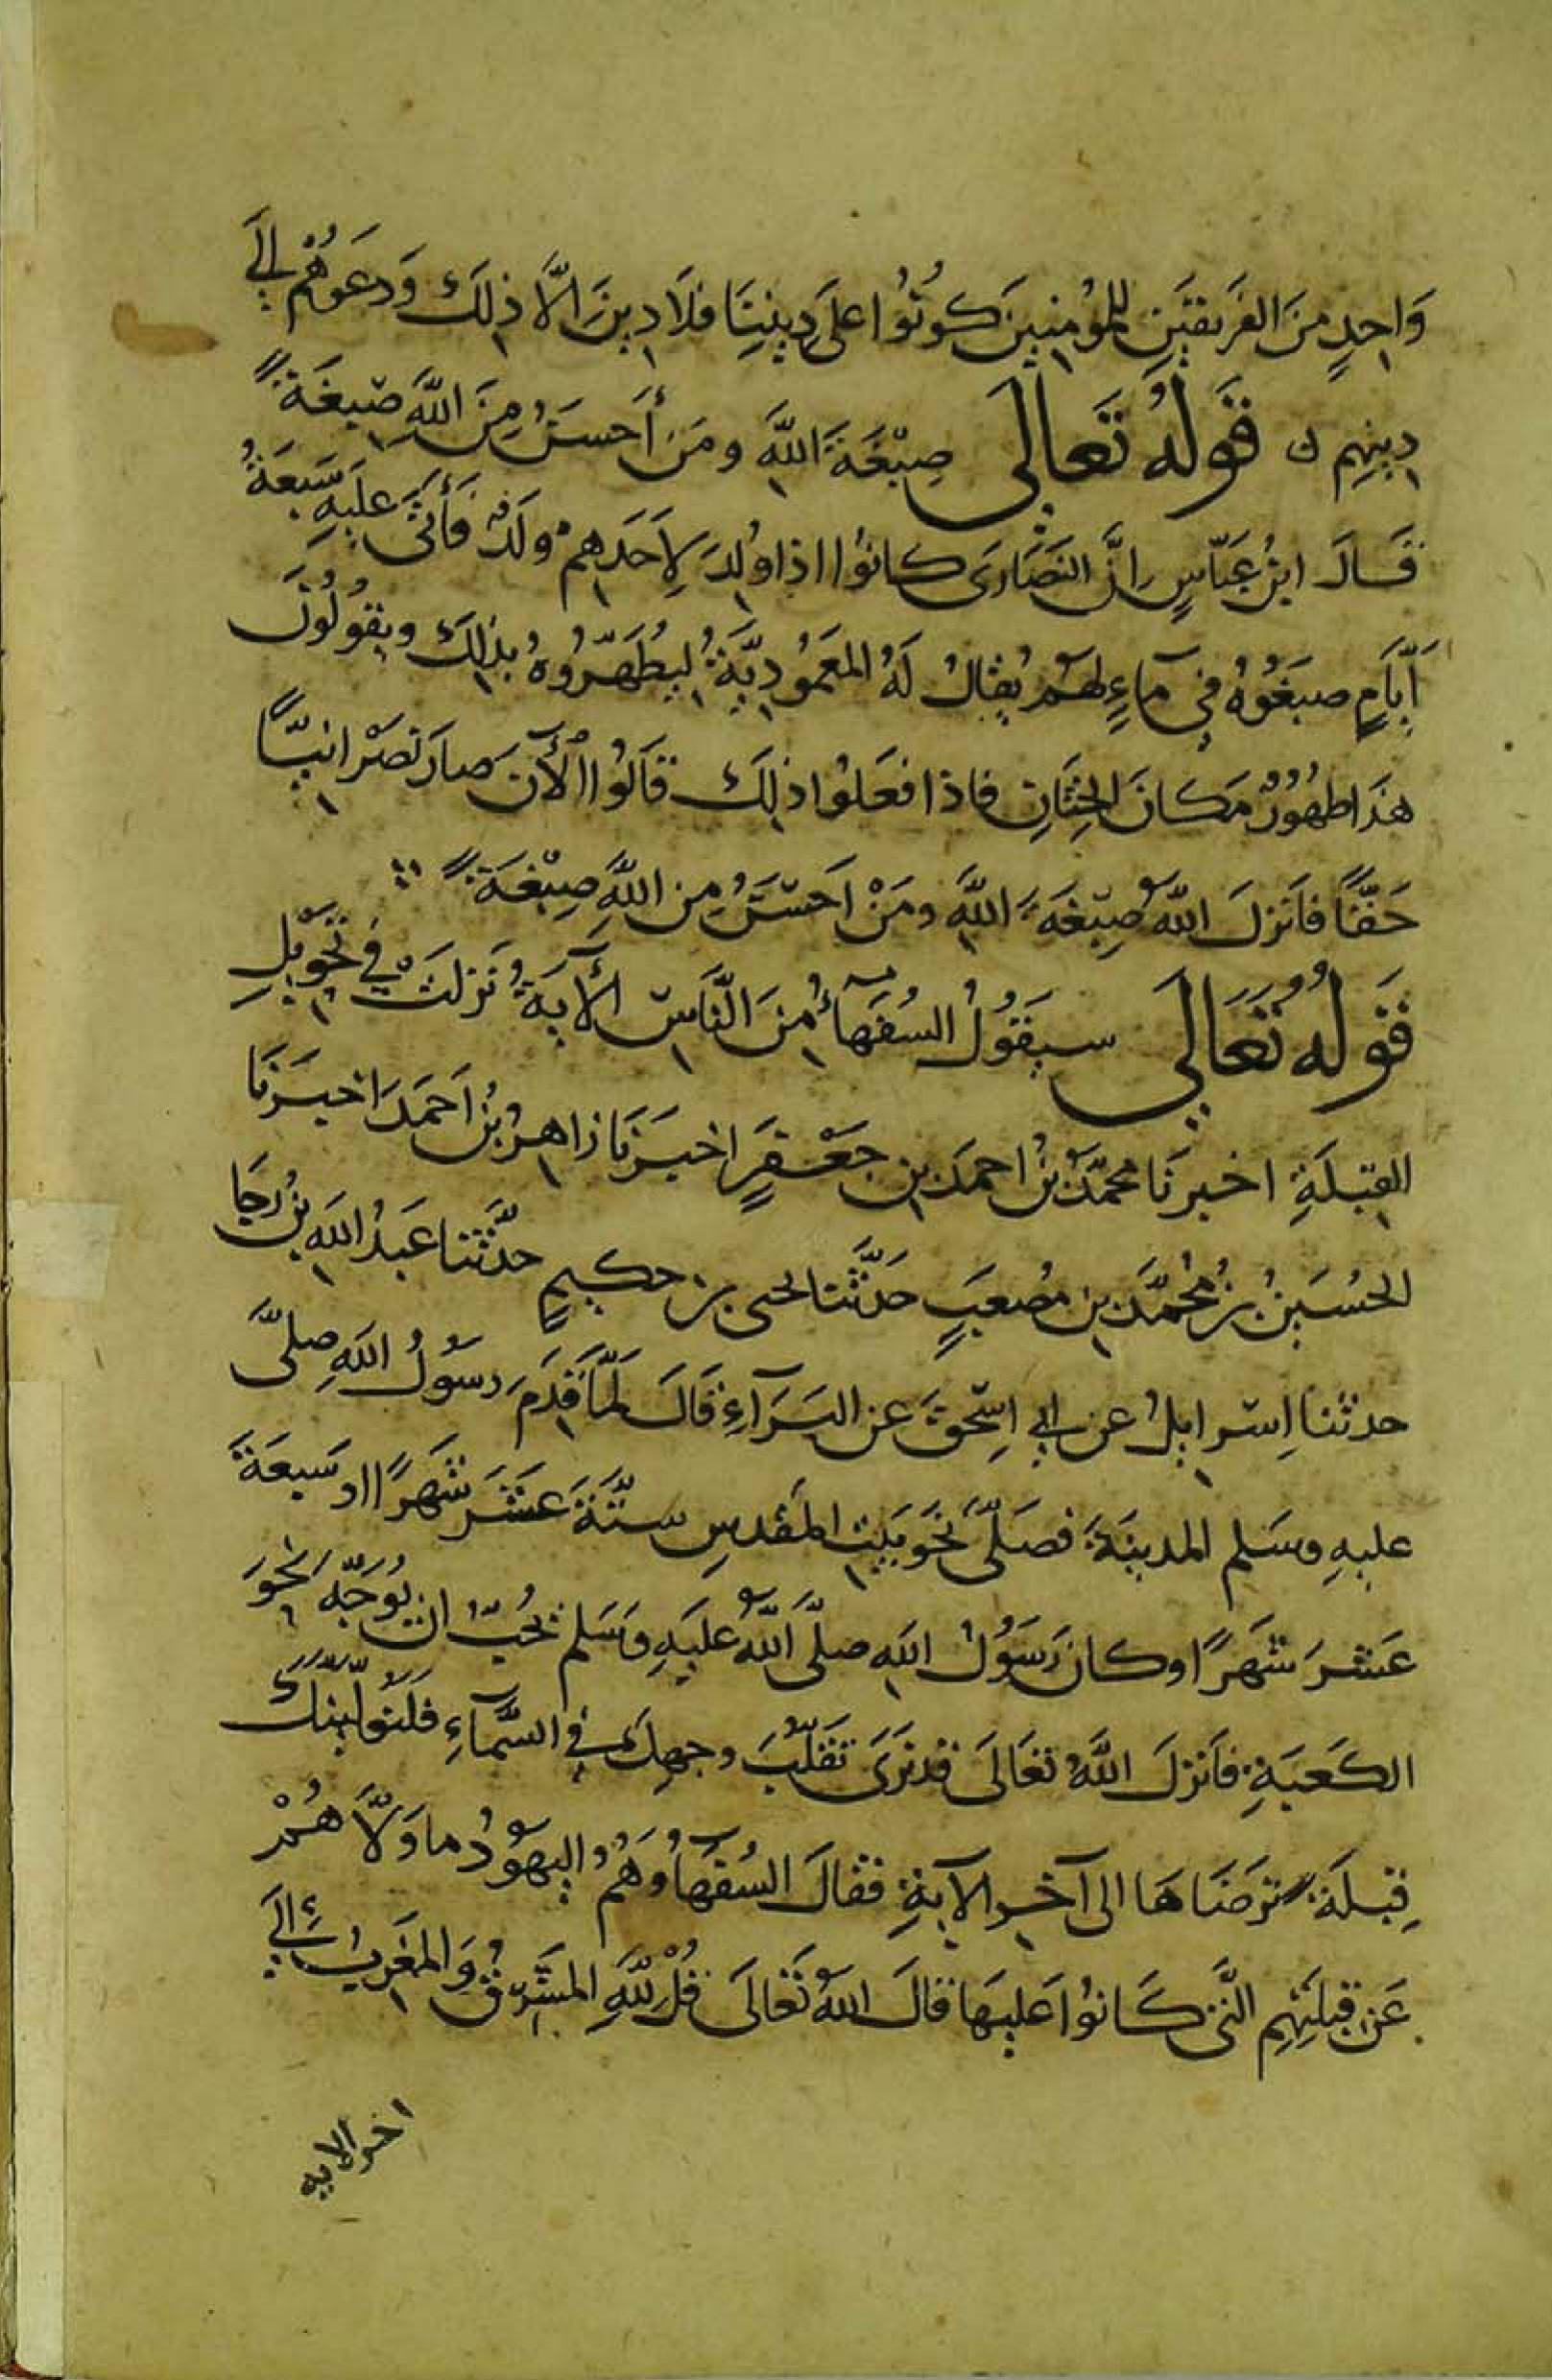 وَاحِدٍ مِنَ الفَرِيقَيْنِ لِلمُؤمِنِينَ كُونُوا عَلَى دِينِنَا فَلَا دِينَ الَّا ذلِكَ وَدَعَوْهُمْ إلَى
دِينِهِم ں قَوْلُهُ تَعَالَى صِبْغَةَ اللَّهِ ومَن أَحسَنُ مِنَ اللَّهِ صِبغَةً
قَالَ ابنُ عَبّاسٍ إنَّ النَصَارَى كانُوا اذا وُلِدَ لِاَحَدِهِمْ ولَدٌ فَأَتَى عَلَيهِ سَبعَةُ
أَيَّامٍ صبَغُوهُ فِي مآءٍ لهم يُقالُ لَهُ المَعمُودِيَّةُ لِيُطَهِّرُوهُ بذلِكَ ويقُولُونَ
هذَا طهُورٌ مَكانَ الخِتَانِ فاذا فَعَلُوا ذلِكَ قَالُوا الْآنَ صارَ نَصْرانِيًّا
حَقًّا فاَنزلَ اللهُ صِبْغَةَ اللَّهِ ومَنْ اَحسَنُ مِن اللَّهِ صِبْغَةً
قَولُهُ تَعَالَى سيَقُولُ السُفَهآءُ مِنَ النَّاسِ الْآيَةُ نَزلَتْ فِي تحْوِيلِ
القِبلَةِ اخبرَنا محمّدُ بنُ احمدَ بنِ جَعْفَرٍ اخبَرَنَا زاهرُ بنُ احمَدَ اخبَرَنَا
الحُسَينُ بنُ مُحمَّدِ بنِ مُصعَبٍ حَدَّثَنا يحيى بن حكيمٍ حدَّثَنا عَبدُ اللهِ بنُ رجا
حدثنا اِسرايلُ عن ابي اِسحقَ عن البَرَآءِ قَالَ لَمَّا قَدِمَ رسُولُ اللهِ صلَّى
عليهِ وسَلم المدينَةَ فصَلَّى نحْوَ بَيتِ المَقدسِ ستَّةَ عَشَرَ شَهرًا او سَبعَةَ
عَشرَ شَهرًا وكانَ رَسُولُ اللهِ صلَّى اللهُ عليَهِ وسَلم يُحبُّ ان يُوَجَّهَ نحوَ
الكَعبَةِ فاَنزلَ اللَّهُ تعَالَى قد نَرَى تَقَلُّبَ وجهِكَ في السَّمآءِ فَلَنُوَلِّيَنَّكَ
قِبلَةً تَرضَاهَا الى آخرِ الآيةِ فقالَ السُفهآءُ وَهُمُ اليَهُودُ ما وَلَّاهُمْ
عَن قِبلَتِهِم الَّتي كَانُوا عَليهَا قالَ اللهُ تَعَالَى قُلْ لِلَّهِ المَشرِقُ وَالمَغرِبُ إلَى
اخر الايه